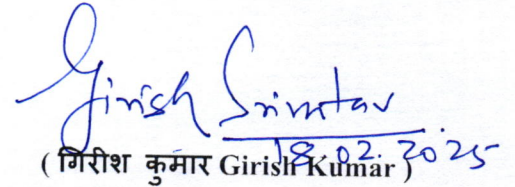 Girish Srivastav
18.02.2025
( गिरीश कुमार Girish Kumar )